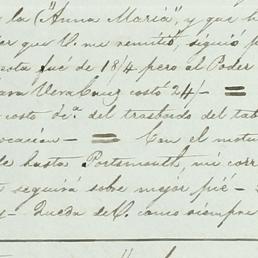 la ("Anna Maria", y que h
que V. me remitió, siguió p
ota fué de 18/4. pero al Poder
ara Vera Cruz costó 24/- =
costo óc.ª del traslado del tab
ocacion - = Con el motu
de hasta Portsmouth, mi corr
seguirá sobre mejor pié -
Queda de V. como siempre